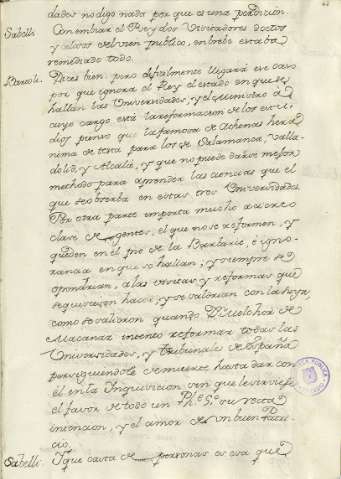 dades no digo nada por que es una perdicion.
Sabelli. Con embiar el Rey dos Visitadores doctos
y celosos se bvien publico, en brebe estaba
remediado todo.
Bartoli. Dizes bien; pero dificilmente llegará ese caso
por que ignora el Rey el estado en que se
hallan las Universidades, y el Ministro á
cuyo cargo está la reformacion de los estu-
dios piensa que la famosa de Athenas hera
nima de teta para los de Salamanca, Valla-
dolid, y Alcalá, y que no puede darse mejor
methodo para aprender las ciencias que el
que se observa en estas tres Universidades.
Por otra parte importa mucho a cierta
clase de gentes, el que no se reformen, y
queden en el pie de la Barbarie, é igno-
rancia en que se hallan, y siempre se
opondrian, a las visitas, y reformas que
se quisiesen hacer, y se valdrian con la suya,
como se valieron quando Dn. Melchor de
Macanaz intentó reformar todas las
Universidades, y Tribunales de España
persiguiendole de muerte hasta dar con
él en la Inquisicion sin que le sirviese
el favor de todo un Phe. 5o. su recta
intencion, y el amor de un buen Patri-
cio.
Sabelli. Y que casta de personas es esa que